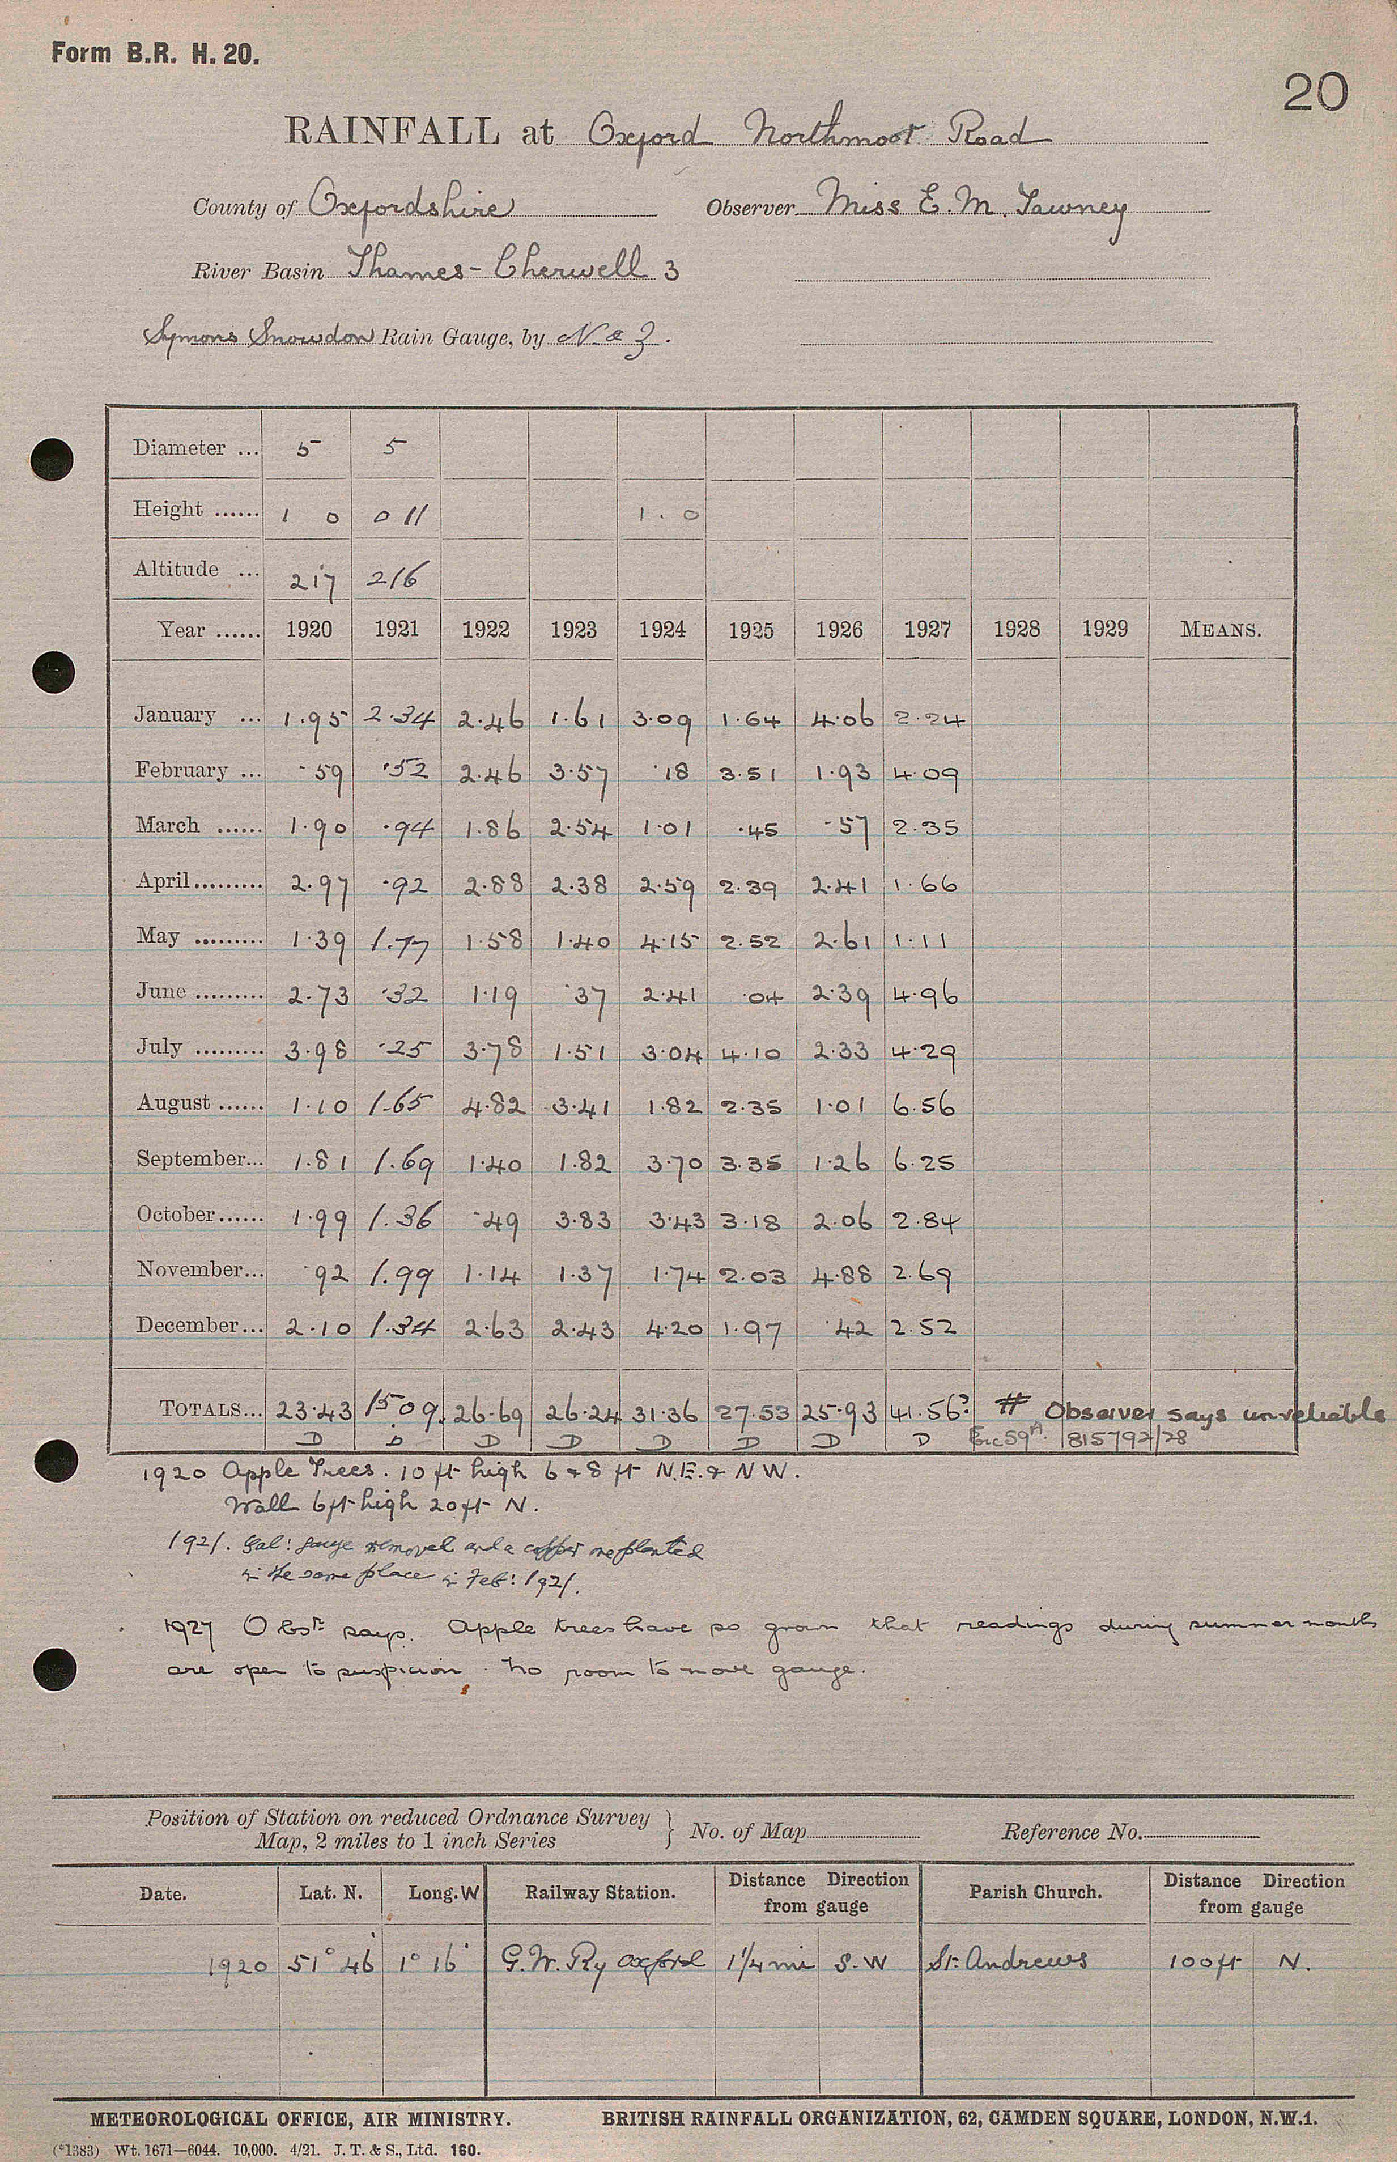 Form B.R. H. 20.
20
RAINFALL at Oxford Northmoor Road
County of Oxfordshire Observer Miss E. M. Tawney
River Basin Thames - Cherwell 3
Symons Snowdon Rain Gauge, by N & Z.
Diameter ... 5 5
Height ...... 1 0 0 11 1. 0
Altitude ... 217 216
Year ...... 1920 1921 1922 1923 1924 1925 1926 1927 1928 1929 MEANS.
January ... 1.95 2.34 2.46 1.61 3.09 1.64 4.06 2.24
February ... .59 .52 2.46 3.57 .18 3.51 1.93 4.09
March ...... 1.90 .94 1.86 2.54 1.01 .45 .57 2.35
April......... 2.97 .92 2.88 2.38 2.59 2.39 2.41 1.66
May ......... 1.39 1.77 1.58 1.40 4.15 2.52 2.61 1.11
June ......... 2.73 .32 1.19 .37 2.41 .04 2.39 4.96
July ......... 3.98 .25 3.78 1.51 3.04 4.10 2.33 4.29
August ...... 1.10 1.65 4.82 3.41 1.82 2.35 1.01 6.56
September... 1.81 1.69 1.40 1.82 3.70 3.35 1.26 6.25
October...... 1.99 1.36 .49 3.83 3.43 3.18 2.06 2.84
November... .92 1.99 1.14 1.37 1.74 2.03 4.88 2.69
December... 2.10 1.34 2.63 2.43 4.20 1.97 .42 2.52
TOTALS... 23.43 15.09. 26.69 26.24 31.36 27.53 25.93 41.56? # Observer says unreliable
D D D D D D D D 815792/28
1920 Apple Trees. 10 ft high 6 & 8 ft N.E. & N W.
Wall 6ft high 20ft N.
1921. Gal: gauge removed and a copper one planted
in the same place in Feb: 1921.
1927 Obsr says. Apple trees have so grown that readings during summer months
are open to suspicion. No room to move gauge.
Position of Station on reduced Ordnance Survey
Map, 2 miles to 1 inch Series } No. of Map Reference No.
Date. Lat. N. Long. W Railway Station. Distance Direction from gauge Parish Church. Distance Direction from gauge
1920 51° 46' 1° 16' G.W. Ry Oxford 1¼ mi S.W St. Andrews 100 ft N.
METEOROLOGICAL OFFICE, AIR MINISTRY. BRITISH RAINFALL ORGANIZATION, 62, CAMDEN SQUARE, LONDON, N.W.1.
(*1383) Wt. 1671—6044. 10,000. 4/21. J. T. & S., Ltd. 160.